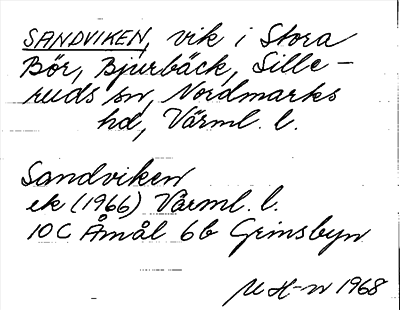 SANDVIKEN, vik i Stora
Bör, Bjurbäck, Sille-
ruds sn, Nordmarks
hd, Värml. l.
Sandviken
ek (1966) Värml. l.
10C Åmål 6b Grinsbyn
M H-n 1968